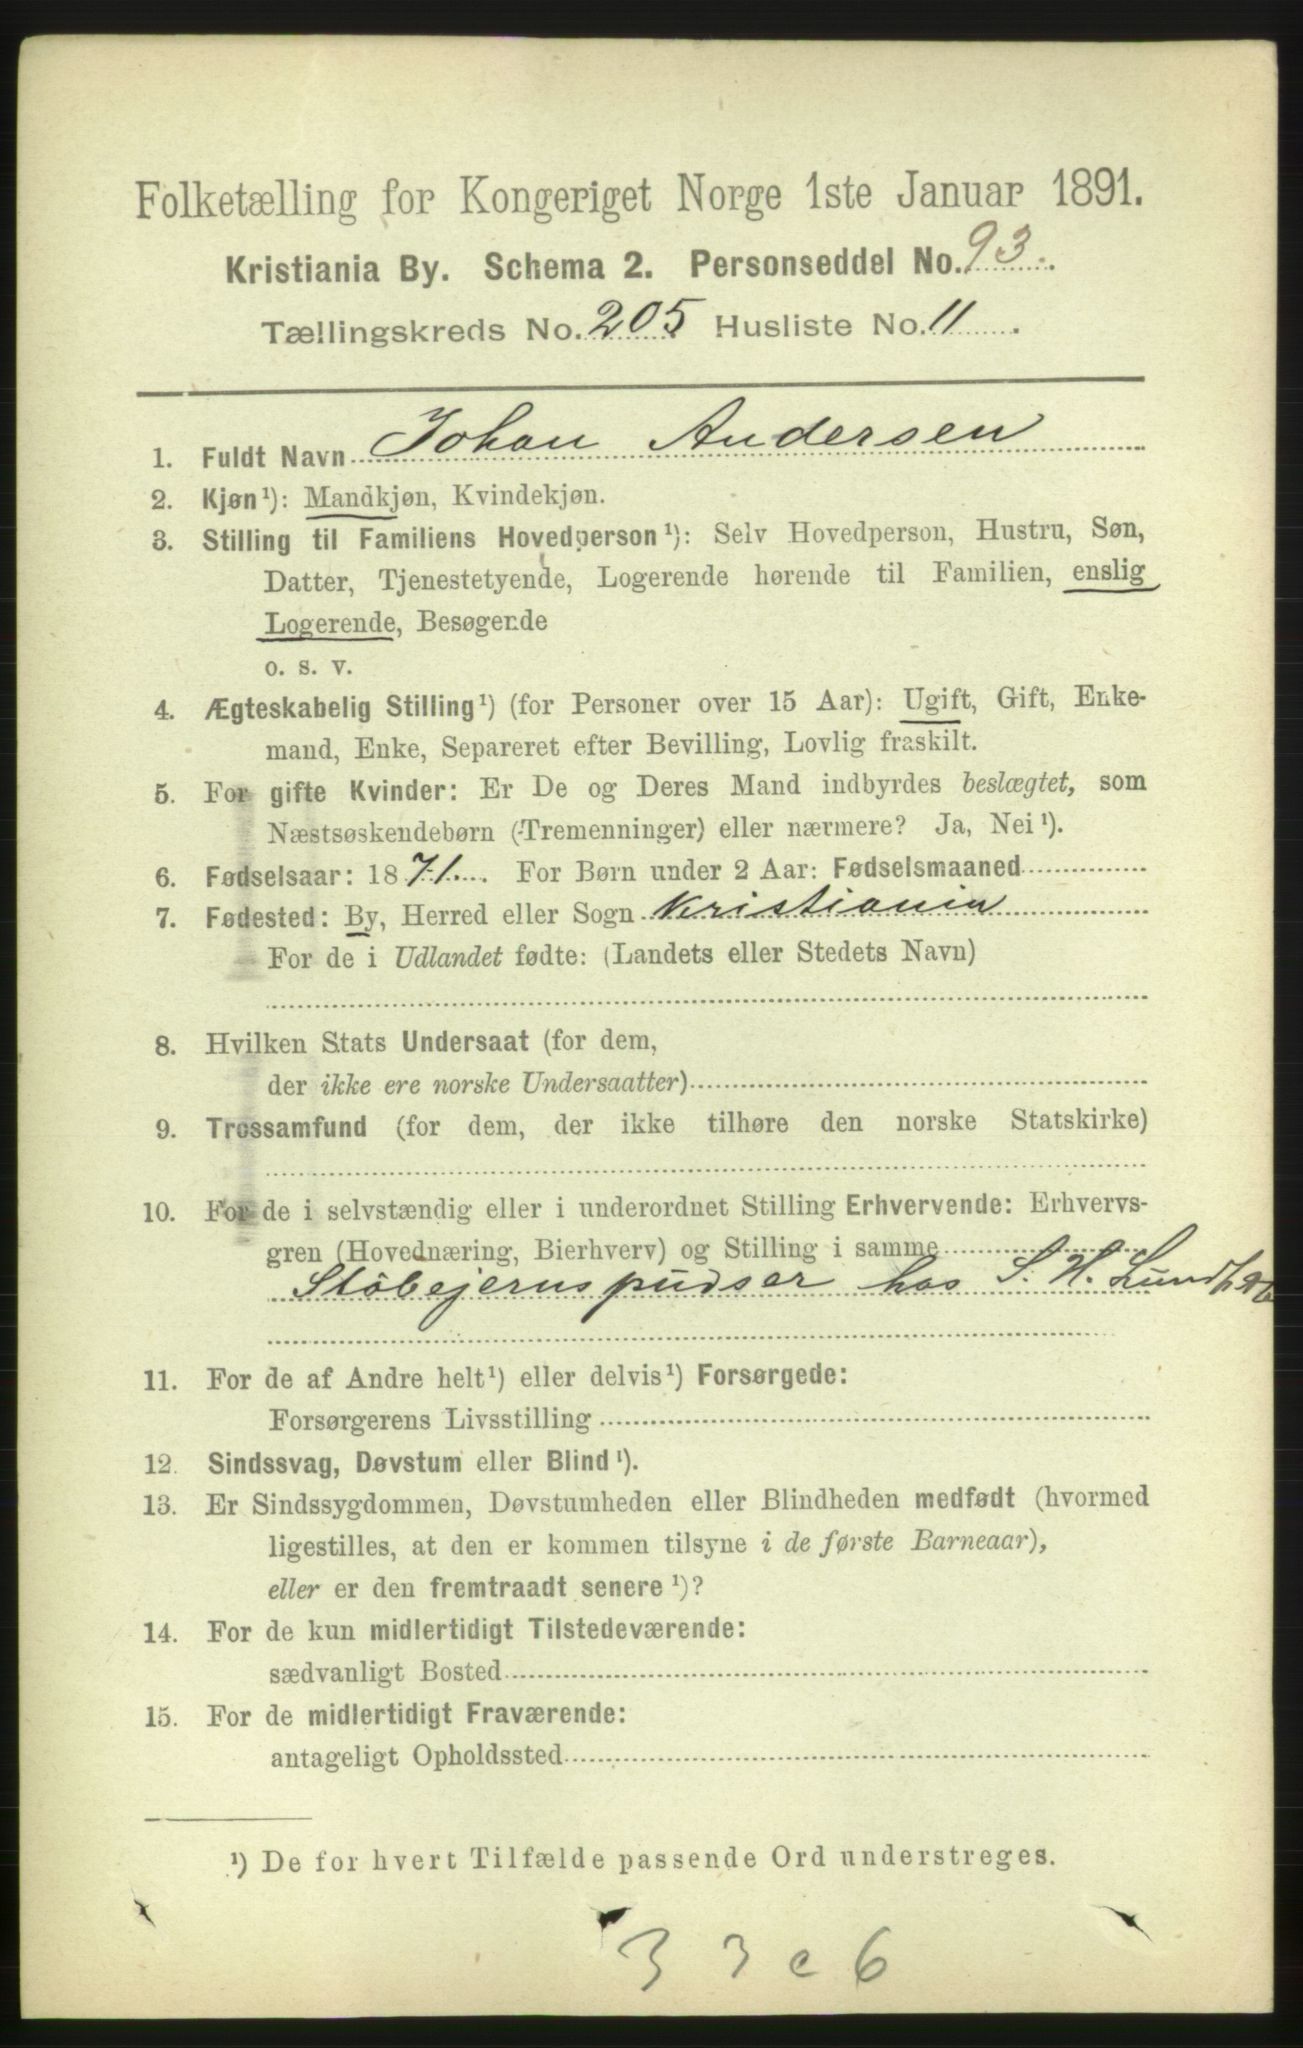 Folketælling for Kongeriget Norge 1ste Januar 1891.
Kristiania By. Schema 2. Personseddel No. 93.
Tællingskreds No. 205 Husliste No. 11.
1. Fuldt Navn Johan Andersen
2. Kjøn¹): Mandkjøn, Kvindekjøn.
3. Stilling til Familiens Hovedperson¹): Selv Hovedperson, Hustru, Søn,
Datter, Tjenestetyende, Logerende hørende til Familien, enslig
Logerende, Besøgende
o. s. v.
4. Ægteskabelig Stilling¹) (for Personer over 15 Aar): Ugift, Gift, Enke-
mand, Enke, Separeret efter Bevilling, Lovlig fraskilt.
5. For gifte Kvinder: Er De og Deres Mand indbyrdes beslægtet, som
Næstsøskendebørn (Tremenninger) eller nærmere? Ja, Nei¹).
6. Fødselsaar: 1871. For Børn under 2 Aar: Fødselsmaaned
7. Fødested: By, Herred eller Sogn Kristiania
For de i Udlandet fødte: (Landets eller Stedets Navn)
8. Hvilken Stats Undersaat (for dem,
der ikke ere norske Undersaatter)
9. Trossamfund (for dem, der ikke tilhøre den norske Statskirke)
10. For de i selvstændig eller i underordnet Stilling Erhvervende: Erhvervs-
gren (Hovednæring, Bierhverv) og Stilling i samme
Stöbejernspudser hos S. H. 
11. For de af Andre helt¹) eller delvis¹) Forsørgede:
Forsørgerens Livsstilling
12. Sindssvag, Døvstum eller Blind¹).
13. Er Sindssygdommen, Døvstumheden eller Blindheden medfødt (hvormed
ligestilles, at den er kommen tilsyne i de første Barneaar),
eller er den fremtraadt senere¹)?
14. For de kun midlertidigt Tilstedeværende:
sædvanligt Bosted
15. For de midlertidigt Fraværende:
antageligt Opholdssted
¹) De for hvert Tilfælde passende Ord understreges.
3 3 c 6